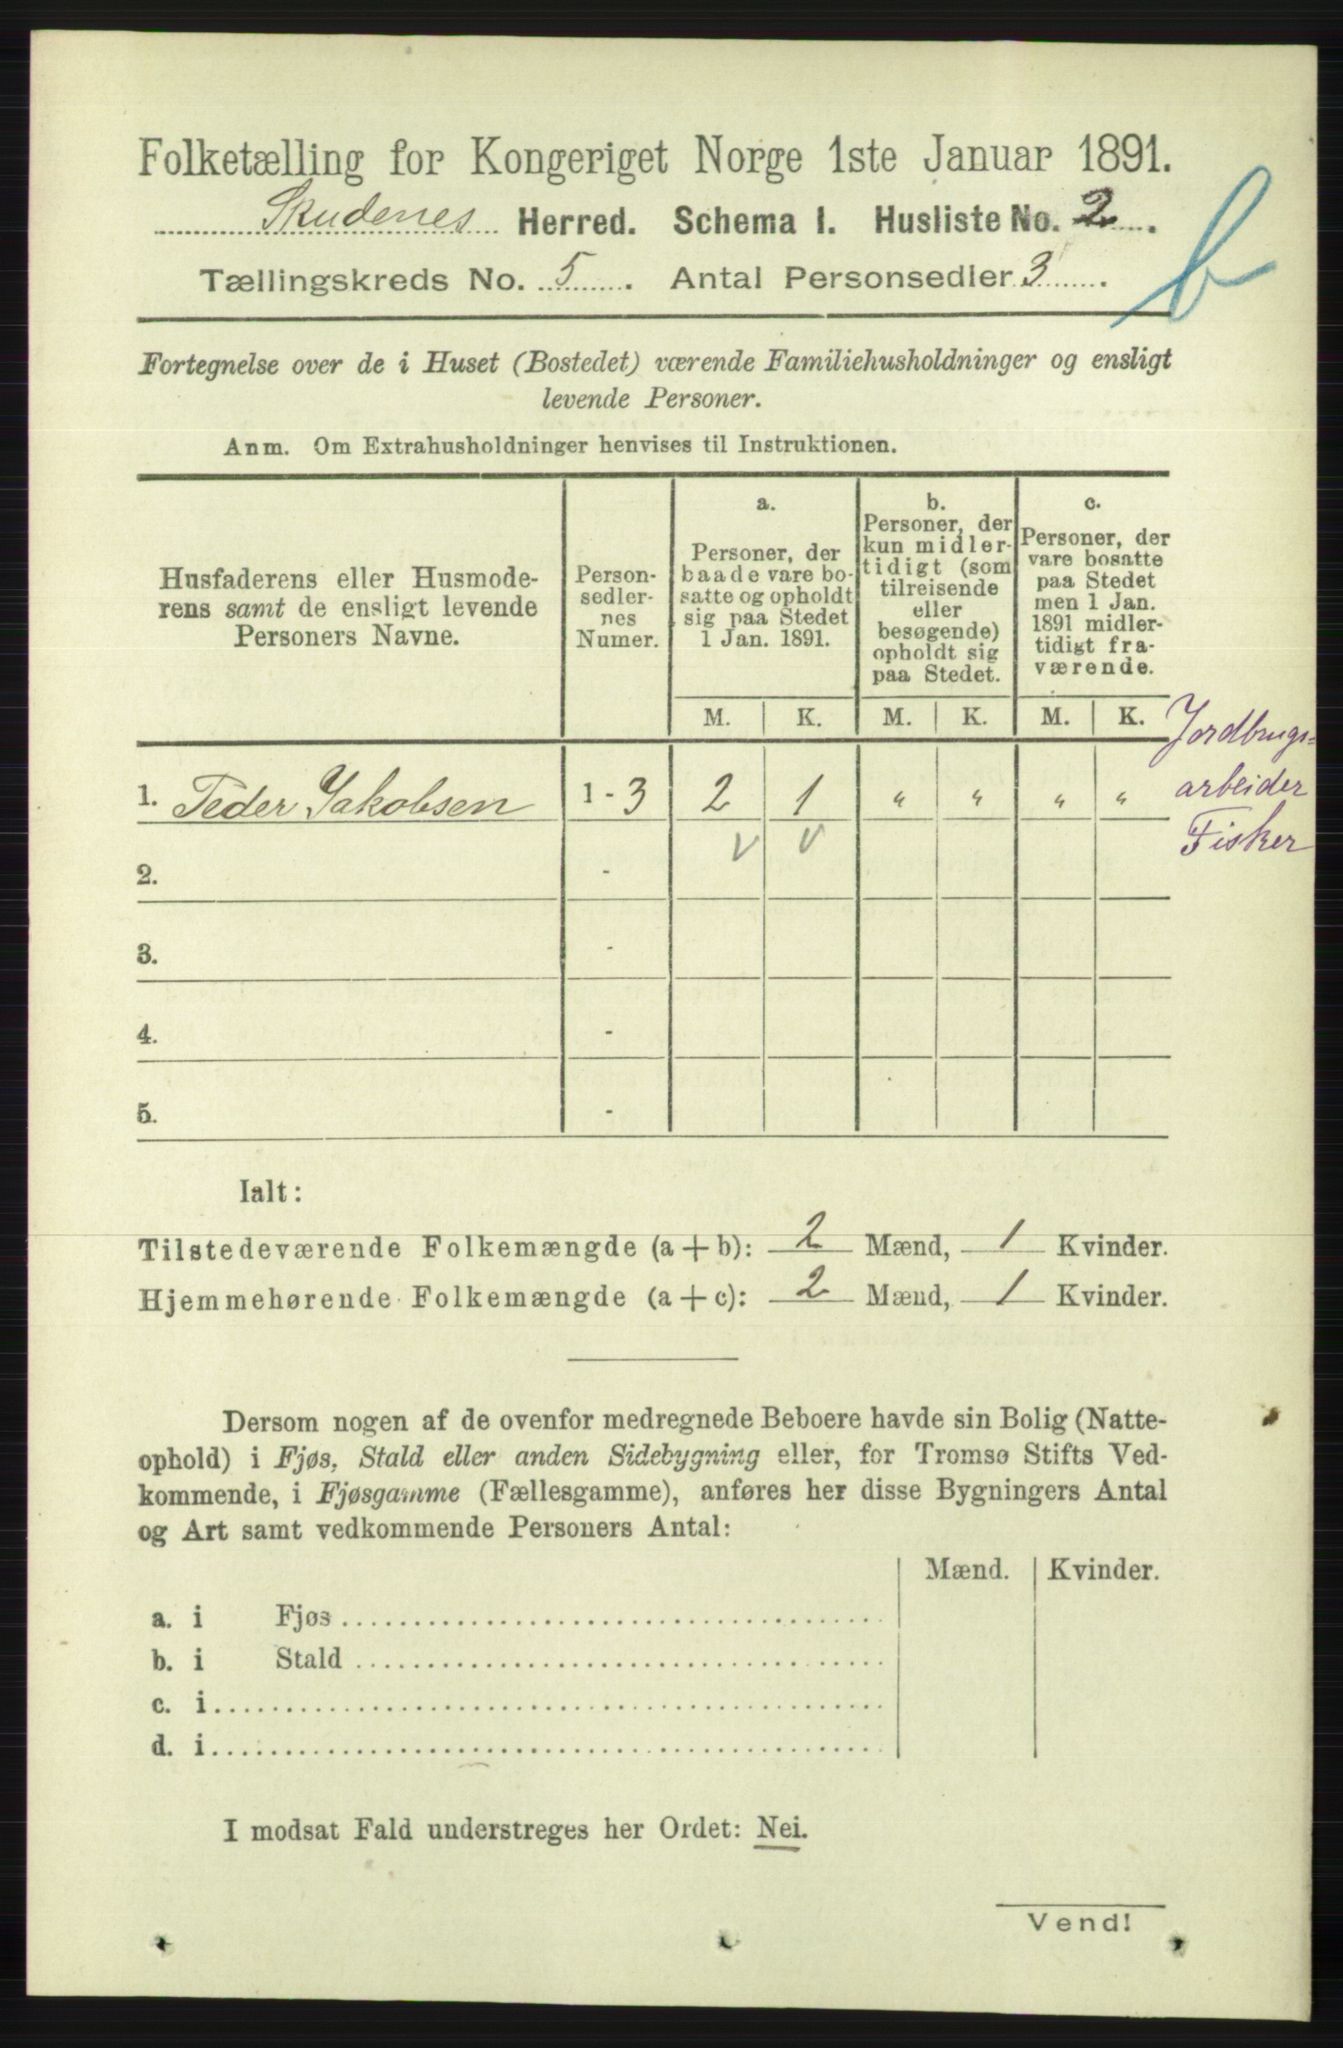 Folketælling for Kongeriget Norge 1ste Januar 1891.
Skudenes Herred. Schema I. Husliste No. 2.
Tællingskreds No. 5. Antal Personsedler 3.
b
Fortegnelse over de i Huset (Bostedet) værende Familiehusholdninger og ensligt
levende Personer.
Anm. Om Extrahusholdninger henvises til Instruktionen.
Husfaderens eller Husmode-
rens samt de ensligt levende
Personers Navne.
Person-
sedler-
nes
Numer.
a.
Personer, der
baade vare bo-
satte og opholdt
sig paa Stedet
1 Jan. 1891.
b.
Personer, der
kun midler-
tidigt (som
tilreisende
eller
besøgende)
opholdt sig
paa Stedet.
c.
Personer, der
vare bosatte
paa Stedet
men 1 Jan.
1891 midler-
tidigt fra-
værende.
M. K. M. K. M. K.
1. Peder Jakobsen 1 - 3 2 1 " " " "
Jordbrugs-
arbeider
Fisker
v v
2. -
3. -
4. -
5. -
Ialt:
Tilstedeværende Folkemængde (a + b): 2 Mænd, 1 Kvinder.
Hjemmehørende Folkemængde (a + c): 2 Mænd, 1 Kvinder.
Dersom nogen af de ovenfor medregnede Beboere havde sin Bolig (Natte-
ophold) i Fjøs, Stald eller anden Sidebygning eller, for Tromsø Stifts Ved-
kommende, i Fjøsgamme (Fællesgamme), anføres her disse Bygningers Antal
og Art samt vedkommende Personers Antal:
Mænd. Kvinder.
a. i Fjøs
b. i Stald
c. i
d. i
I modsat Fald understreges her Ordet: Nei.
Vend!